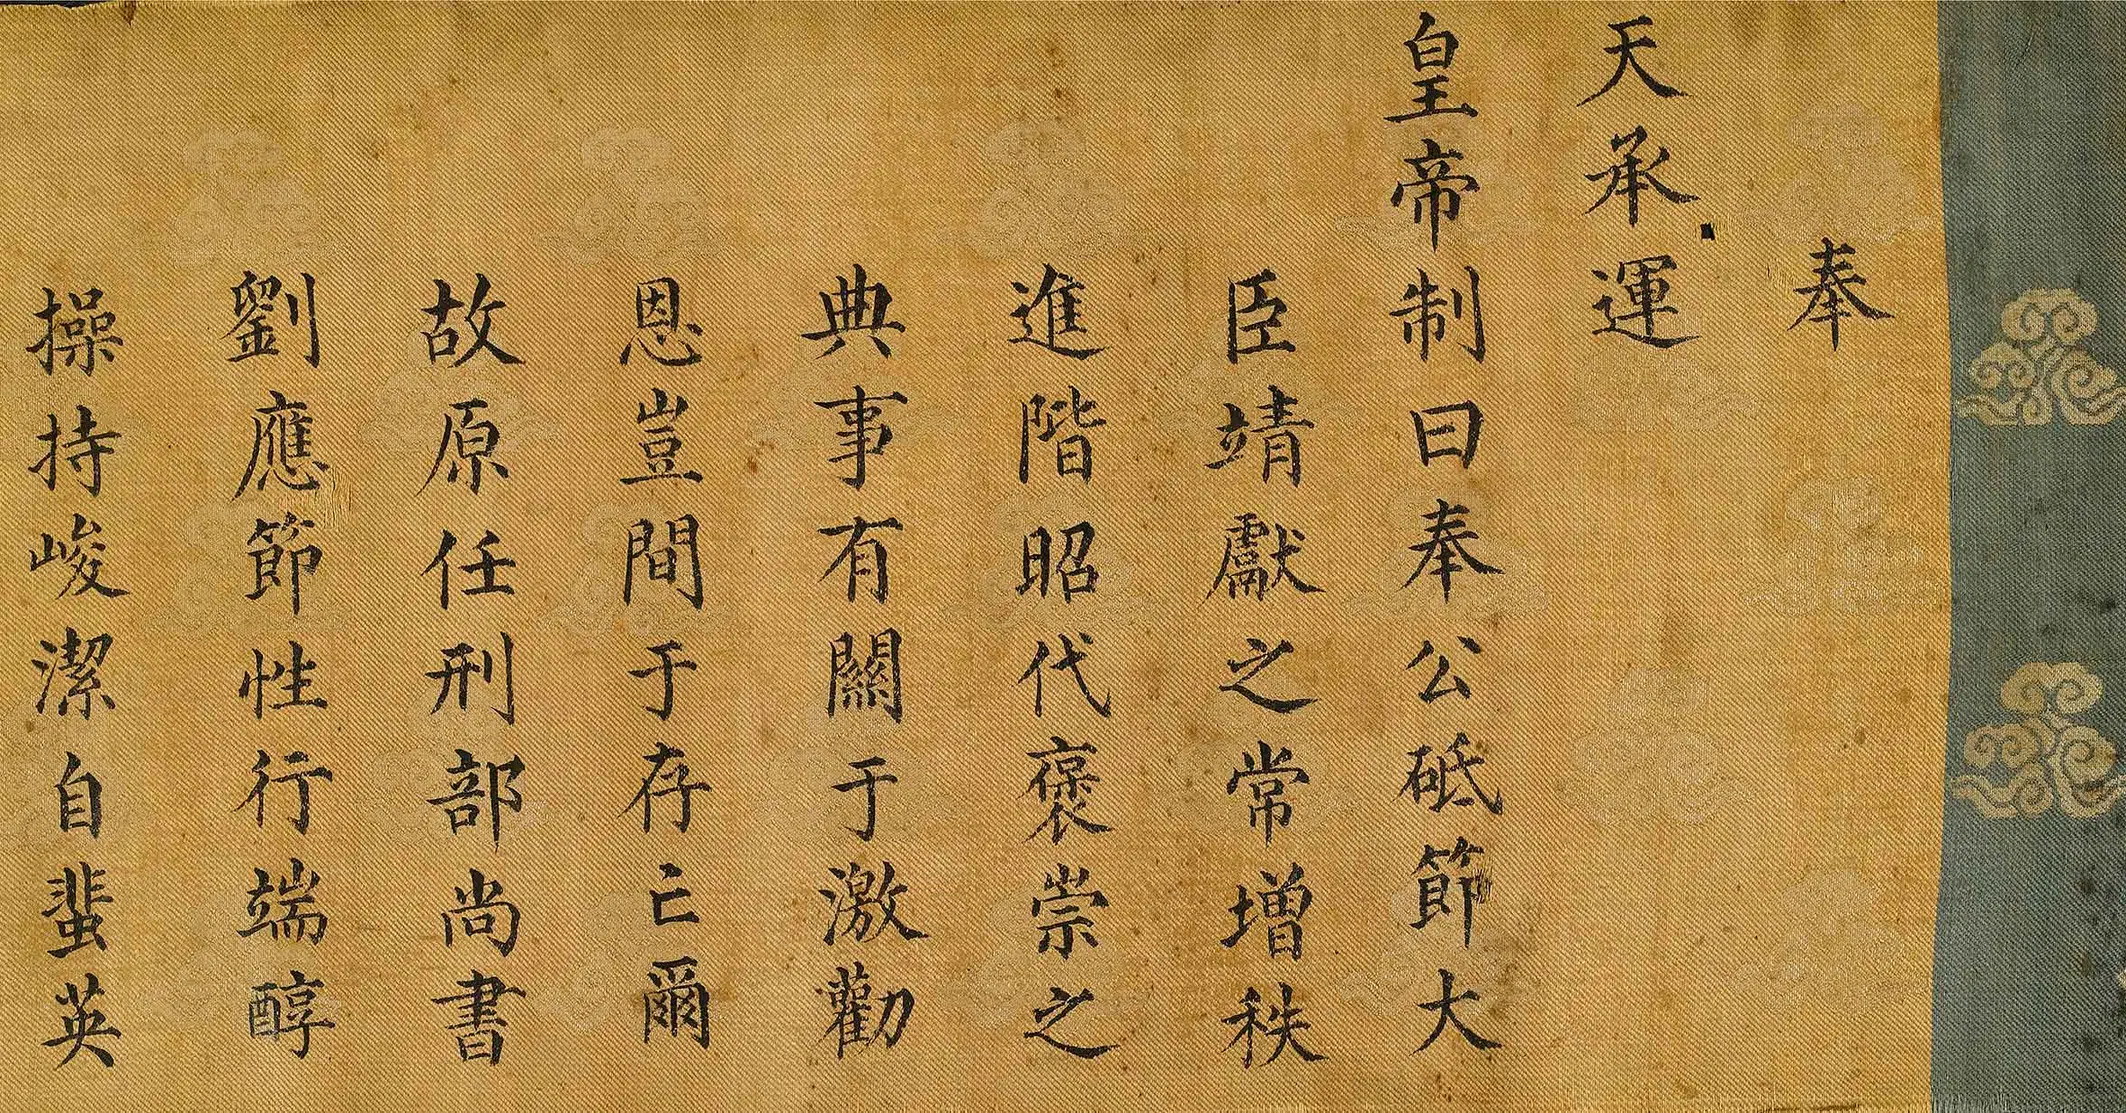 奉
天承運
皇帝制曰奉公砥節大
臣靖獻之常增秩
進階昭代褒崇之
典事有關于激勸
恩豈間于存亡爾
故原任刑部尚書
劉應節性行端醇
操持峻潔自蜚英